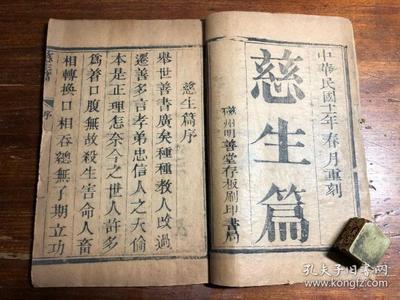 中華民國十一年春月重刻
慈生篇
磁州明善堂存板刷印書局
慈生篇序
舉世善書廣矣種種教人改過
遷善多言孝弟忠信人之大倫
本是正理怎奈今之世人許多
為着口腹無故殺生害命人畜
相轉換口相吞總無了期立功
慈生篇 序
孔夫子旧书网
www.kongfz.com